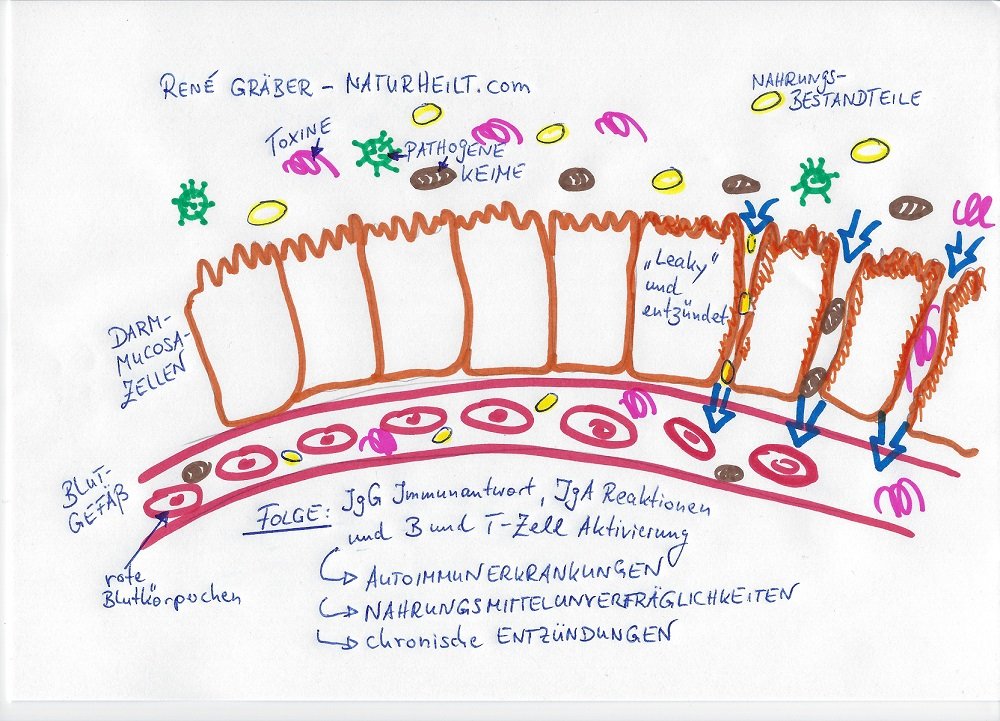 RENÉ GRÄBER – NATURHEILT.com
NAHRUNGS-
BESTANDTEILE
TOXINE
PATHOGENE
KEIME
„Leaky"
und
entzündet
DARM-
MUCOSA-
ZELLEN
BLUT-
GEFÄß
rote
Blutkörpochen
FOLGE: IgG Immunantwort, IgA Reaktionen
und B und T-Zell Aktivierung
AUTOIMMUNERKRANKUNGEN
NAHRUNGSMITTELUNVERTRÄGLICHKEITEN
chronische ENTZÜNDUNGEN